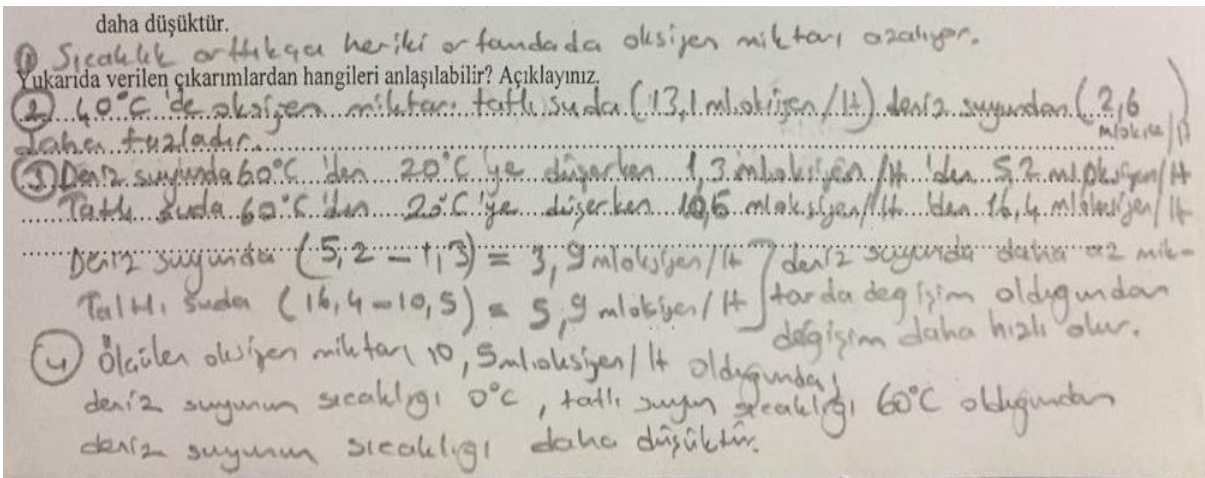 daha düşüktür.
① Sıcaklık arttıkça heriki ortamdada oksijen miktarı azalıyor.
Yukarıda verilen çıkarımlardan hangileri anlaşılabilir? Açıklayınız.
② 40°C 'de oksijen miktarı tatlı suda (13,1 ml.oksijen/lt) deniz suyundan (2,6 mloksi/lt)
daha fazladır.
③ Deniz suyunda 60°C 'den 20°C'ye düşerken 1,3 mloksijen/lt 'den 5,2 mloksijen/lt
Tatlı suda 60°C'den 20°C'ye düşerken 10,5 mloksijen/lt 'den 16,4 mloksijen/lt
Deniz suyunda (5,2 - 1,3) = 3,9 mloksijen/lt } deniz suyunda daha az mik-
Tatlı suda (16,4 - 10,5) = 5,9 mloksijen/lt } tarda değişim olduğundan
değişim daha hızlı olur.
④ Ölçülen oksijen miktarı 10,5ml.oksijen/lt olduğunda,
deniz suyunun sıcaklığı 0°C, tatlı suyun sıcaklığı 60°C olduğundan
deniz suyunun sıcaklığı daha düşüktür.